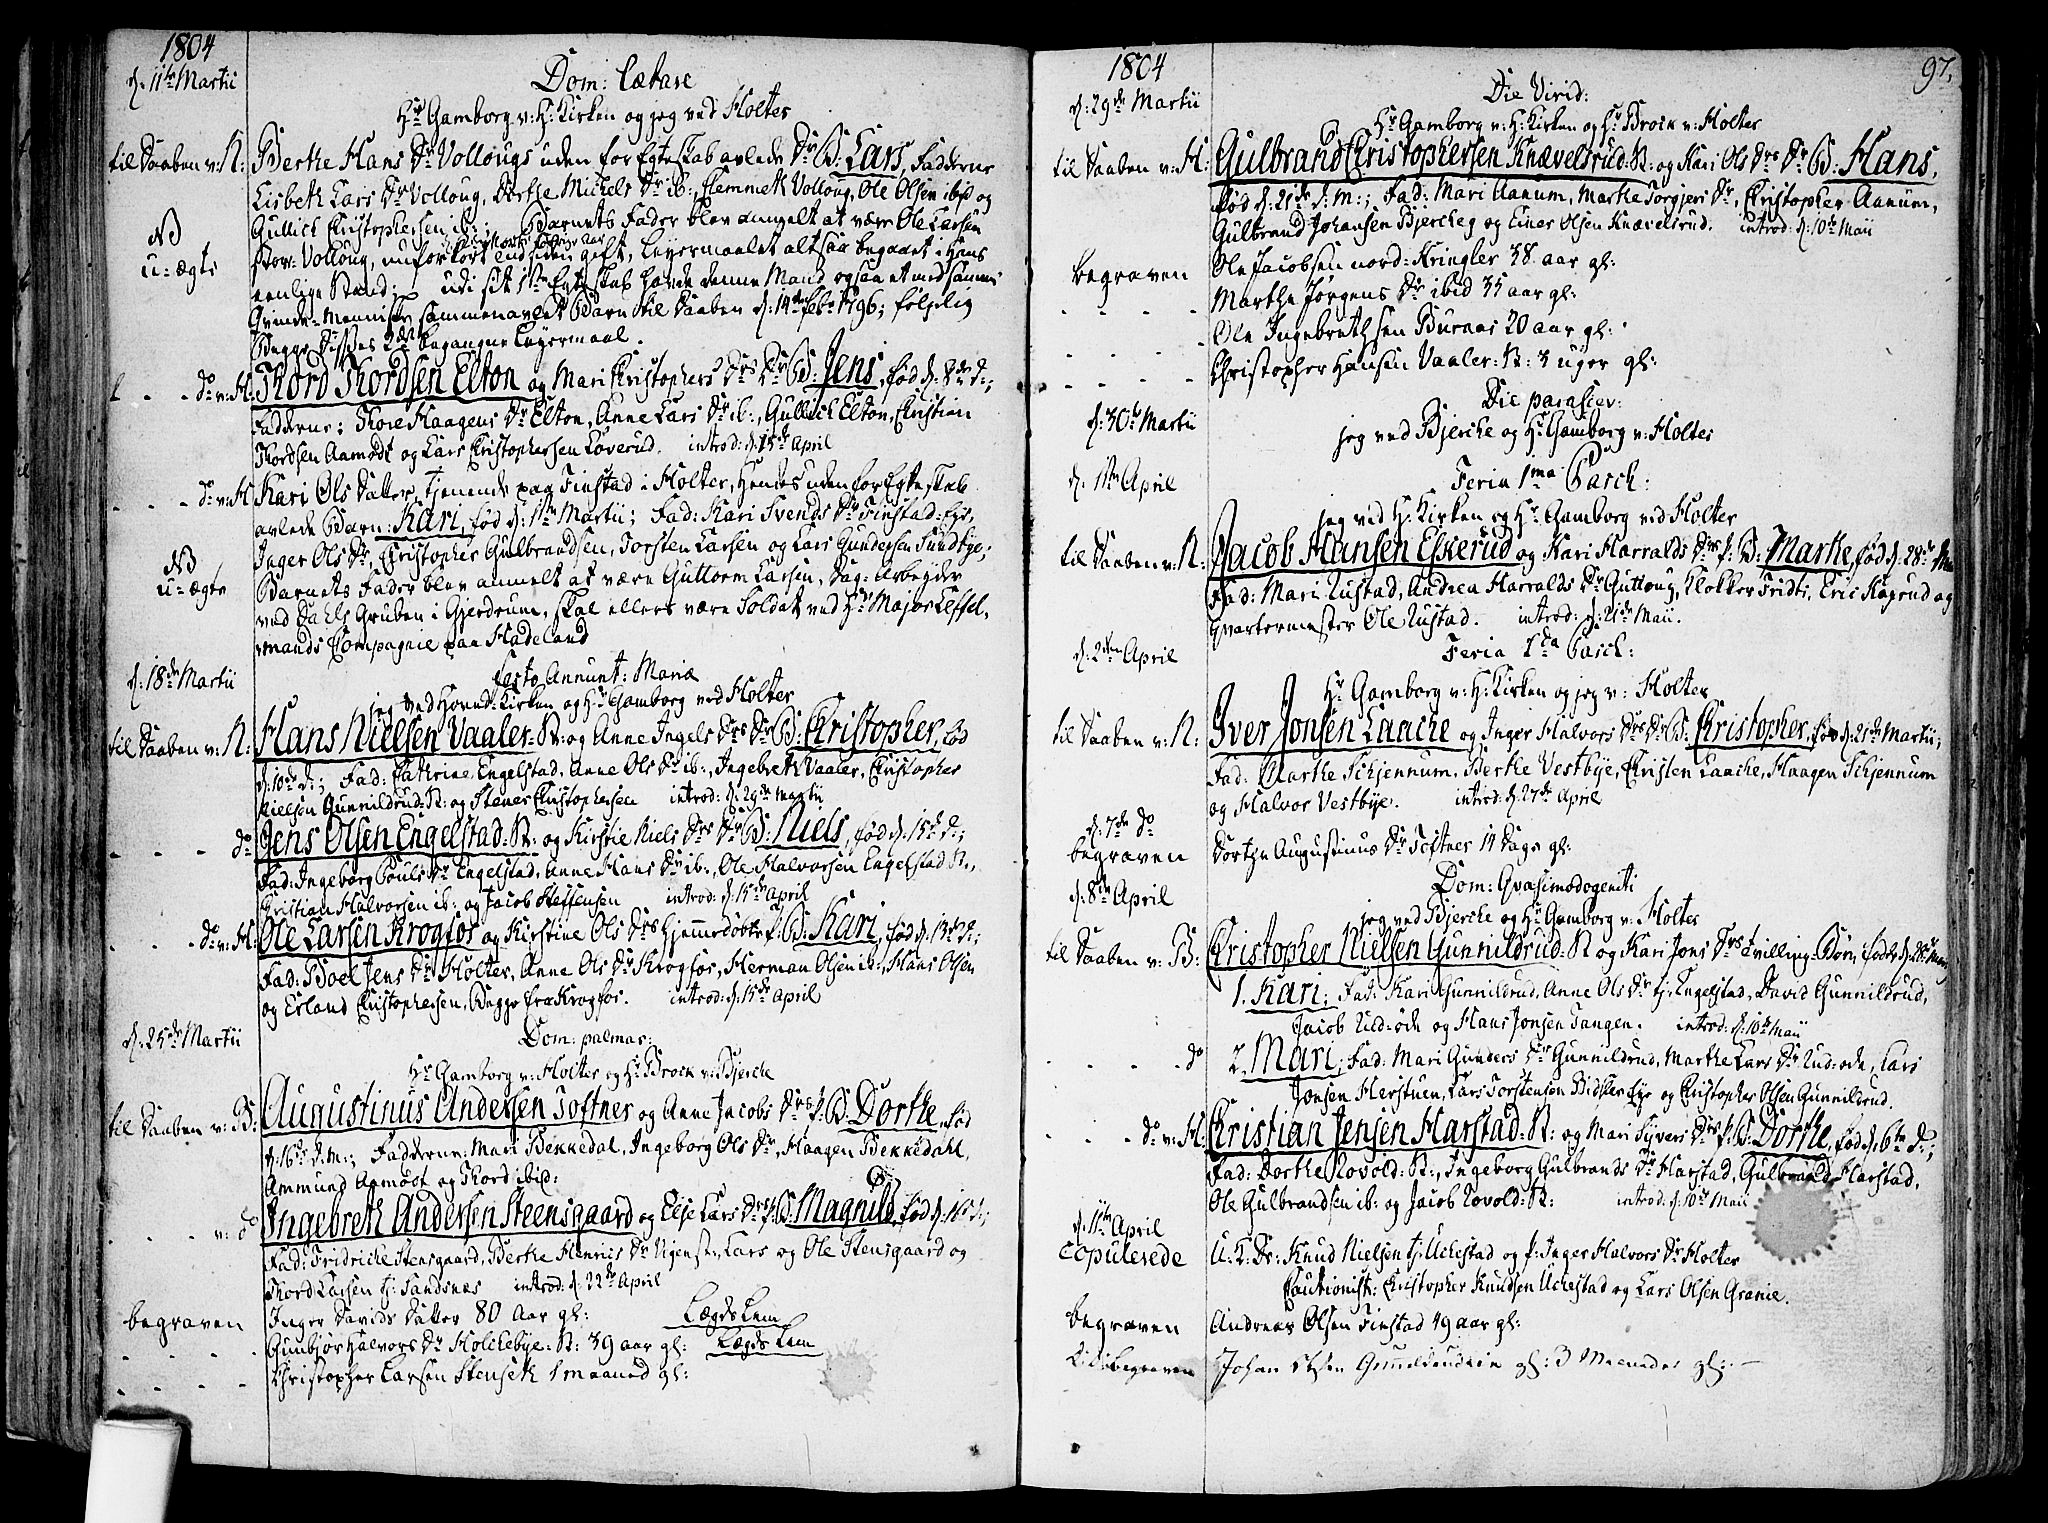 1804
d: 11te Martii
Dom: Lætare
Hr Gamborg v: H: Kirken og jeg ved Holter
til Daaben v: N: Berthe Hans Dr Vollougs uden for Egteskab avlede Dr B: Lars, Fadderne
Lisbeth Lars Dr Volloug, Dorthe Michels Dr ib:, Flemmeth Volloug, Ole Olsen ibid og
Gullich Christophersen ib:; Barnets Fader blev angivet at være Ole Larsen
NB
u=ægte
Stor=Volloug, nu for kort tid siden gift, Leyermaalet altsaa begaaet i Hans
eenlige Stand; udi sit 1ste Egteskab havde denne Mand ogsaa et med samme
Qvinde=Menniske sammenavlet Barn til Daaben d: 14de febr 1796; følgelig
Begge Disses 2det begangne Leyermaal.
- - - do v: H: Thord Thordsen Elton og Mari Christophers Drs Dr B: Jens, fød d: 8de d:;
Fadderne: Thore Haagens Dr Elton, Anne Lars Dr ib:, Gullich Elton, Christian
Thordsen Aamodt og Lars Christophersen Løverud. introd: d: 15de April
- - - do v: H Kari Ols Datter, tjenende paa Finstad i Holter, Hendes uden for Egteskab
avlede Barn: Kari, fød d: 1ste Martii; Fad: Kari Svends Dr Finstad=Eye,
Inger Ols Dr, Christopher Gulbrandsen, Torsten Larsen og Lars Gundersen Sundbye;
NB
u=ægte
Barnets Fader blev anmelt at være Guttorm Larsen, Dag=Arbeyder
ved Dahls Gruben i Gjerdrum, skal ellers være Soldat ved Hr Major Leffel,
mands Compagnie paa Hadeland
d: 18de Martii
Festo Annunt: Mariæ
jeg ved Hoved=Kirken og Hr Gamborg ved Holter
til Daaben v: N: Hans Nielsen Vaaler=N: og Anne Ingels Drs Dr B: Christopher, fød
d: 10de d:; Fad: Cathrine Engelstad, Anne Ols Dr ib:, Ingebreth Vaaler, Christopher
Nielsen Gunnildrud=N: og Stener Christophersen introd: d: 29de Martii
- - - do Jens Olsen Engelstad=N: og Kirstie Niels Drs Dr B: Niels, fød d: 15de d:;
Fad: Ingeborg Pouls Dr Engelstad, Anne Hans Dr ib:, Ole Halvorsen Engelstad N:,
Christian Halvorsen ib: og Jacob Steffensen introd: d: 15de April
- - - do v: H: Ole Larsen Krogfos og Kirstine Ols Drs Hjemmedøbte p: B: Kari, fød d: 13de d:;
Fad: Boel Jens Dr Holter, Anne Ols Dr Krogfos, Herman Olsen ib:, Hans Olsen
og Erland Christophersen, Begge fra Krogfos. introd: d: 15de April
d: 25de Martii
Dom: palmar:
Hr Gamborg v: Holter og Hr Brock v: Bjercke
til Daaben v: B: Augustinus Andersen Toftner og Anne Jacobs Drs p: B: Dorthe, fød
d: 16de d: m:; Fadderne: Mari Bekkedal, Ingeborg Ols Dr, Haagen Bekkedahl,
Ammund Aamodt og Thord ibid:
- - - v: do Ingebreth Andersen Steensgaard og Else Lars Drs p: B: Magnild, fød d: 16de d:;
Fad: Fridriche Stensgaard, Berthe Henrics Dr Nyenst:, Lars og Ole Stensgaard og
Thord Larsen tj: Sandsnes introd: d: 22de April
begraven Inger Davids Datter 80 Aar gl: Lægds Lem
- - - Gunbjør Halvors Dr Holckebye=N: 39 aar gl: Lægds Lem
- - - - Christopher Larsen Stenseth 1 maaned gl:
97.
1804
d: 29de Martii
Die Virid:
Hr Gamborg v: H: Kirken og Hr Brock v: Holter
til Daaben v: H: Gulbrand Christophersen Knævelsrud=N: og Kari Ols Drs Dr B: Hans,
fød d: 21de d: m:; Fad: Mari Aanum, Marthe Torgjers Dr, Christopher Aanum,
Gulbrand Johansen Bjercheg og Einer Olsen Knævelsrud. introd: d: 10de Maii
begraven
Ole Jacobsen nord=Kringler 38. aar gl:
- - - - Marthe Jørgens Dr ibid 35 aar gl:
- - - - Ole Ingebrethsen Buraas 20 aar gl:
- - - - Christopher Hansen Vaaler=N: 3 uger gl:
d: 30te Martii
Die parascev:
jeg ved Bjercke og Hr Gamborg v: Holter
d. 1ste April
Feria 1ma Pasch:
jeg ved H: Kirken og Hr Gamborg ved Holter
til Daaben v: N: Jacob Hansen Eskerud og Kari Harralds Drs p: B: Marthe, fød d: 28de Mar
Fad: Mari Rustad, Andrea Harralds Dr Gulloug, Klokker Fridti, Eric Hagrud og
Qvartermester Ole Rustad. introd: d: 21de Maii.
d: 2den April
Feria 2da Pasch:
Hr Gamborg v: H: Kirken og jeg v: Holter
til Daaben v: N: Iver Jonsen Laache og Inger Halvors Drs Dr B: Christopher, fød d: 21de Martii;
Fad: Marthe Schjennum, Berthe Vestbye, Christen Laache, Haagen Schjennum
og Halvor Vestbye. introd: d: 27de April
d: 7de do
begraven Dorthe Augustinus Dr Toftner 14 Dage gl:
d: 8de April
Dom: Qvasimodogeniti
jeg ved Bjercke og Hr Gamborg v: Holter
til Daaben v: B: Christopher Nielsen Gunnildrud=N og Kari Jons Drs Tvilling=Børn, fødde d: 28de Mart
1. Kari; Fad: Kari Gunnildrud, Anne Ols Dr tj: Engelstad, David Gunnildrud,
Jacob Rud=øde og Hans Jonsen Tangen. introd: d: 10de Maii
- - - - do 2. Mari; Fad: Mari Gunders Dr Gunnildrud, Marthe Lars Dr Rud=øde, Lars
Jonsen Herstuen, Lars Torstensen Bidsler Eye og Christopher Olsen Gunnildrud.
- - - do v: H: Christian Jensen Harstad=N: og Mari Syvers Drs p: B: Dorthe, fød d: 6te d:;
Fad: Dorthe Rovold=N:, Ingeborg Gulbrands Dr Harstad, Gulbrand Harstad,
Ole Gulbrandsen ib: og Jacob Rovold=N: introd: d: 10de Maii
d: 11te April
copulerede U: K: Dr: Knud Nielsen tj: Uckestad og p: Inger Halvors Dr Holter
Cautionist: Christopher Knudsen Uckestad og Lars Olsen Granie.
begraven Andreas Olsen Finstad 49 aar gl:
begraven Johan Olsen gl: 3 Maaneder gl: -